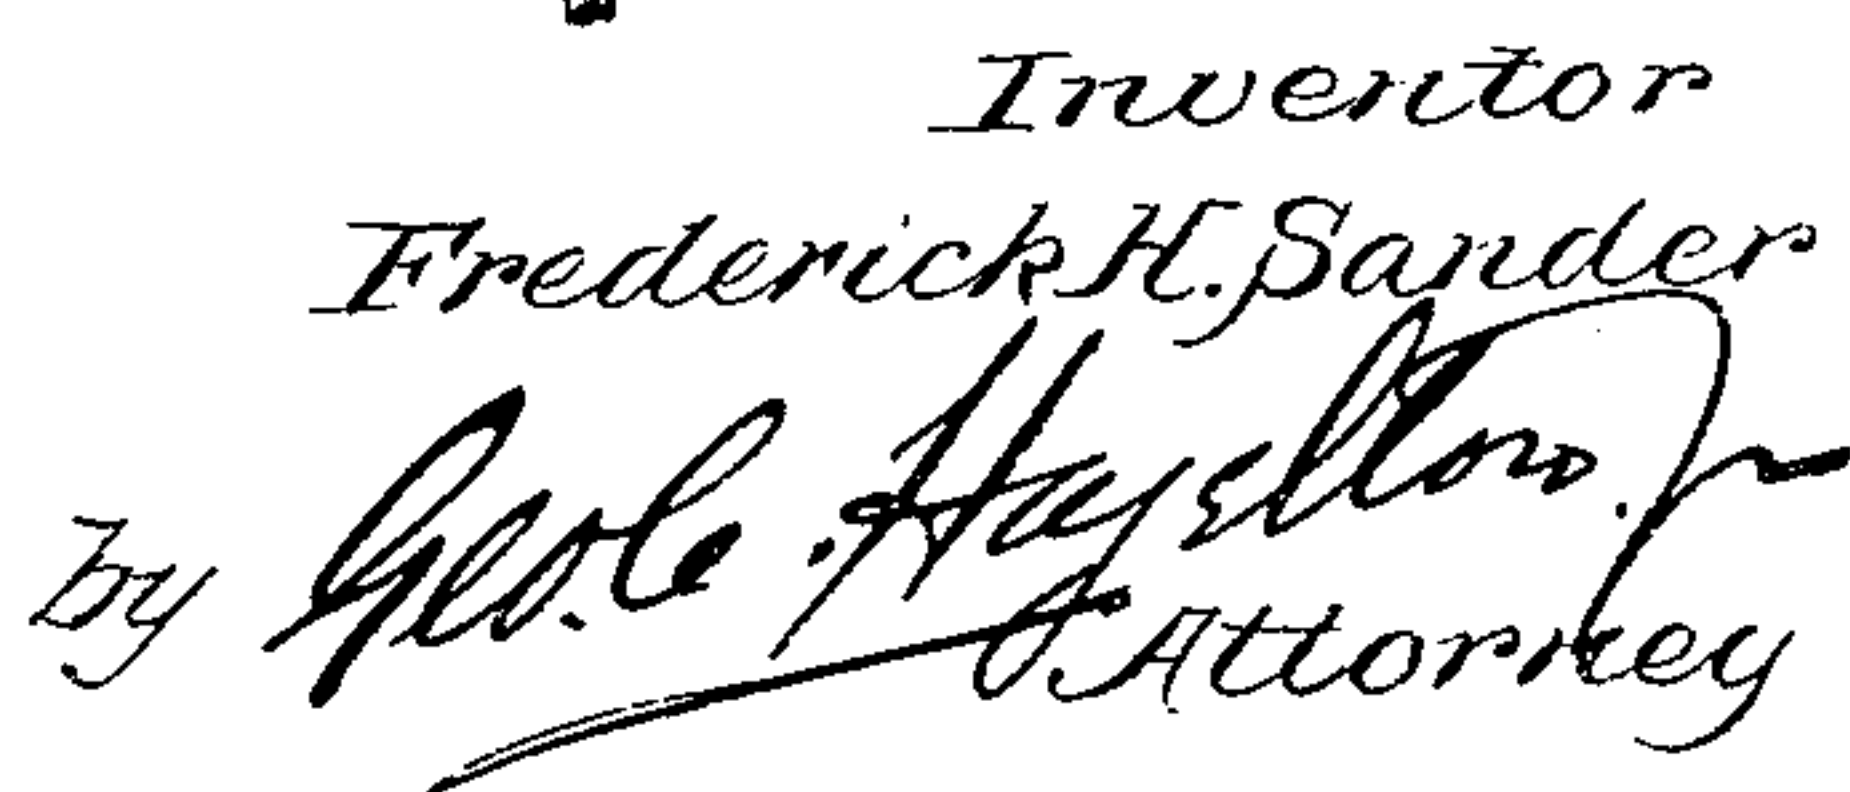 Inventor
Frederick H. Sander
by Geo. C. Hazelton.
Attorney